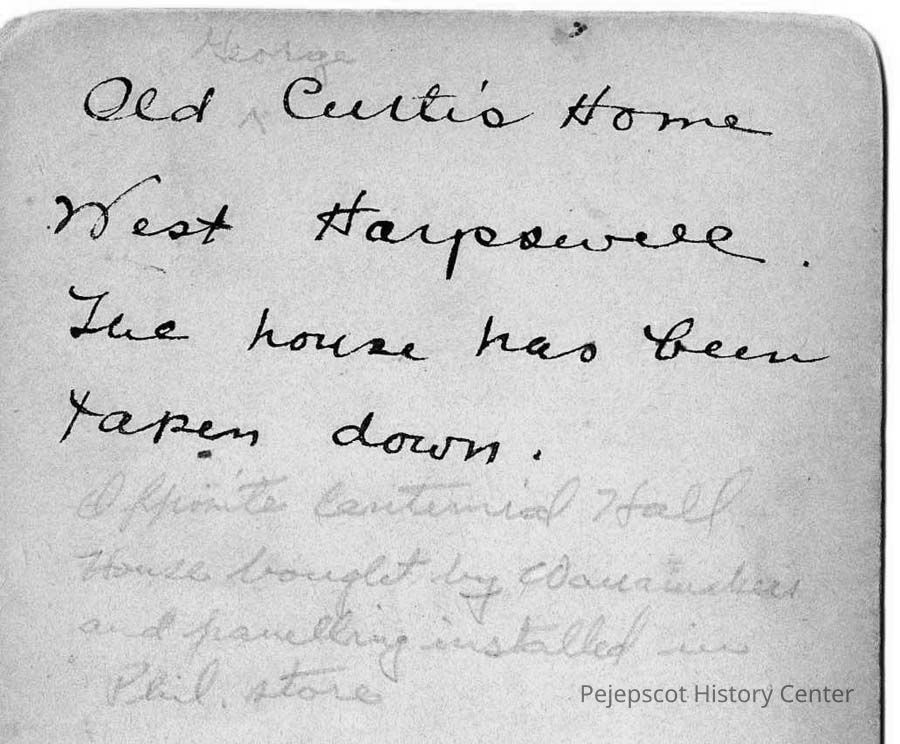 George
Old ^ Curtis Home
West Harpswell.
The house has been
taken down.
Opposite Centennial Hall
House bought by Wanamakers
and panelling installed in
Phil. store
Pejepscot History Center